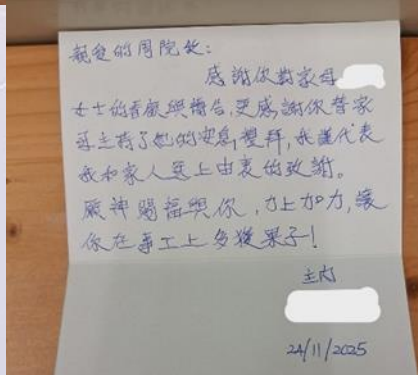 親愛的周院牧:
感謝你對家母
女士的看顧與禱告,更感謝你替家
母主持了她的安息禮拜,我謹代表
我和家人致上由衷的致謝。
願神賜福與你,力上加力,讓
你在事工上多獲果子!
主內
24/11/2025